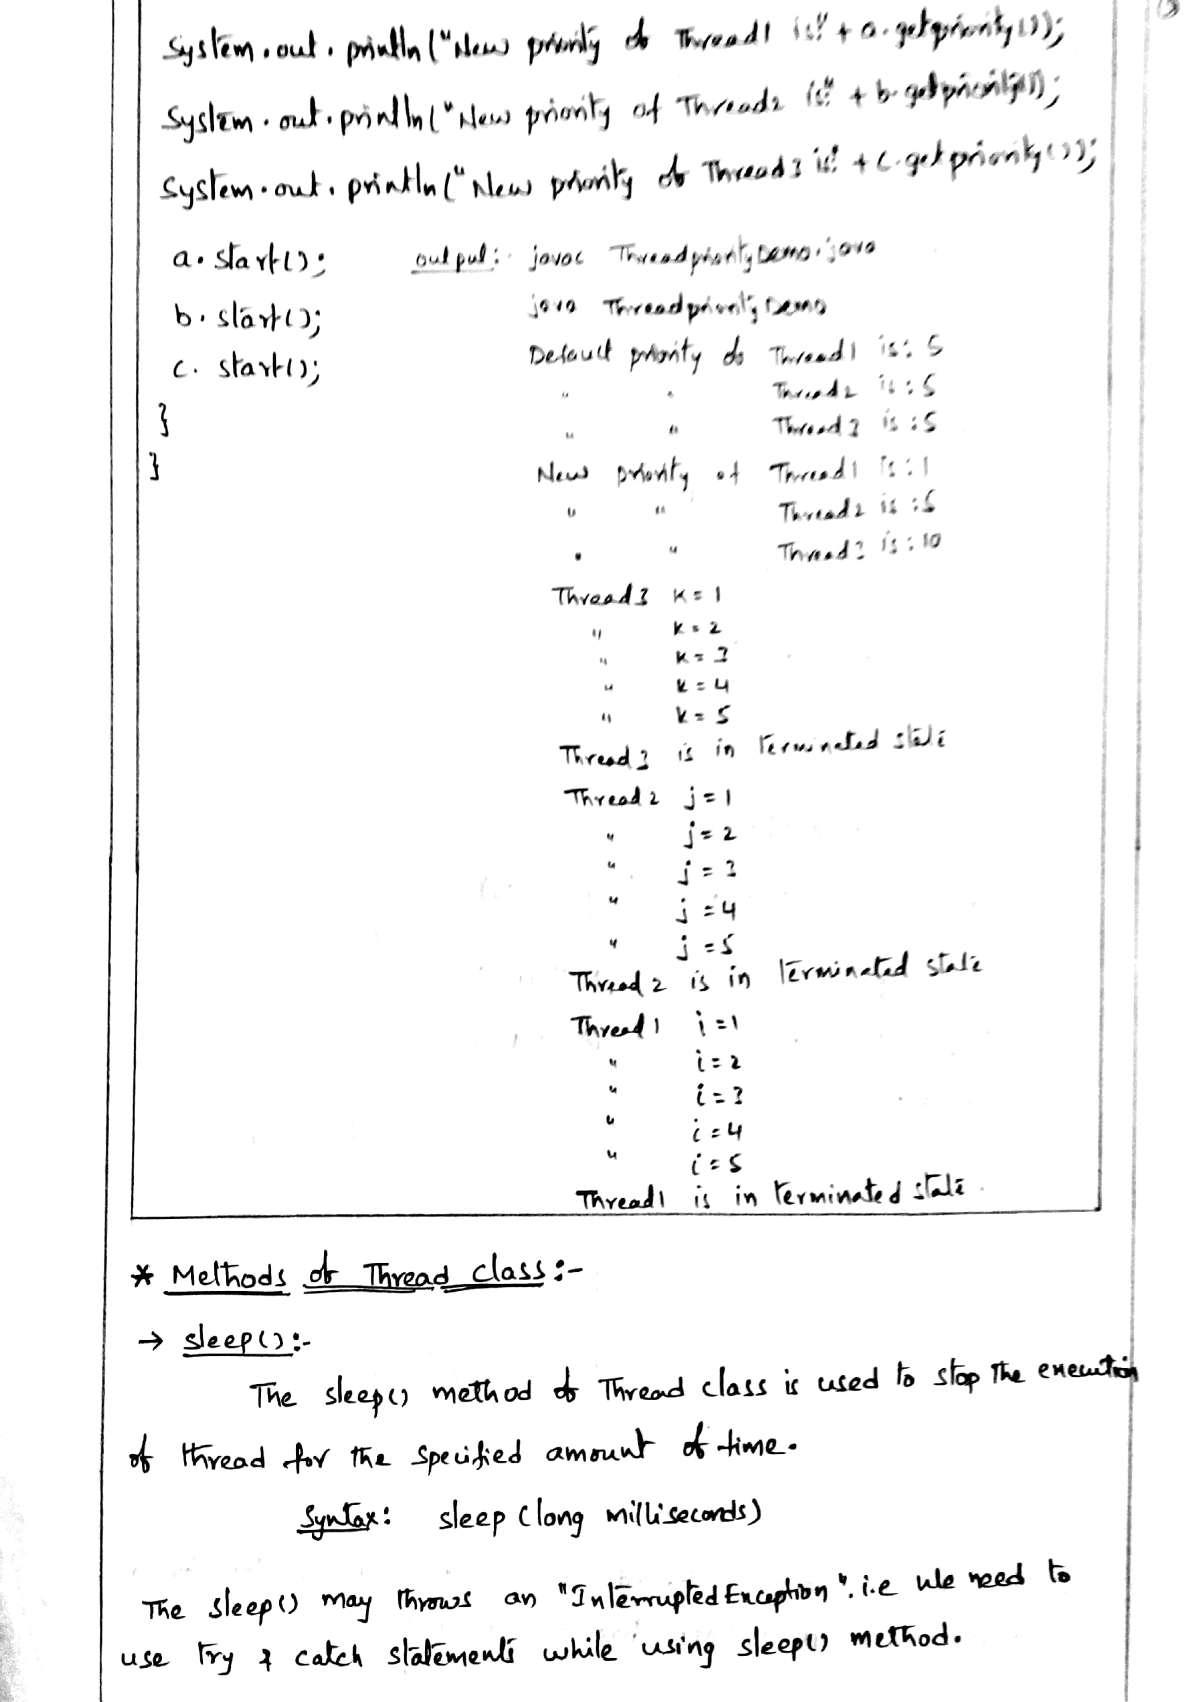 System.out.println("New priority of Thread1 is:" + a.getpriority());
System.out.println("New priority of Thread2 is:" + b.getpriority());
System.out.println("New priority of Thread3 is:" + c.getpriority());
a.start();
b.start();
c.start();
}
}
output:- javac ThreadpriorityDemo.java
java ThreadpriorityDemo
Default priority of Thread1 is: 5
" " Thread2 is: 5
" " Thread3 is: 5
New priority of Thread1 is: 1
" " Thread2 is: 5
" " Thread3 is: 10
Thread3 K=1
" K=2
" K=3
" K=4
" K=5
Thread3 is in Terminated state
Thread2 j=1
" j=2
" j=3
" j=4
" j=5
Thread2 is in Terminated state
Thread1 i=1
" i=2
" i=3
" i=4
" i=5
Thread1 is in Terminated state.
* Methods of Thread class:-
→ sleep():-
The sleep() method of Thread class is used to stop the execution
of thread for the specified amount of time.
Syntax: sleep (long milliseconds)
The sleep() may throws an "InterruptedException". i.e we need to
use try & catch statements while using sleep() method.